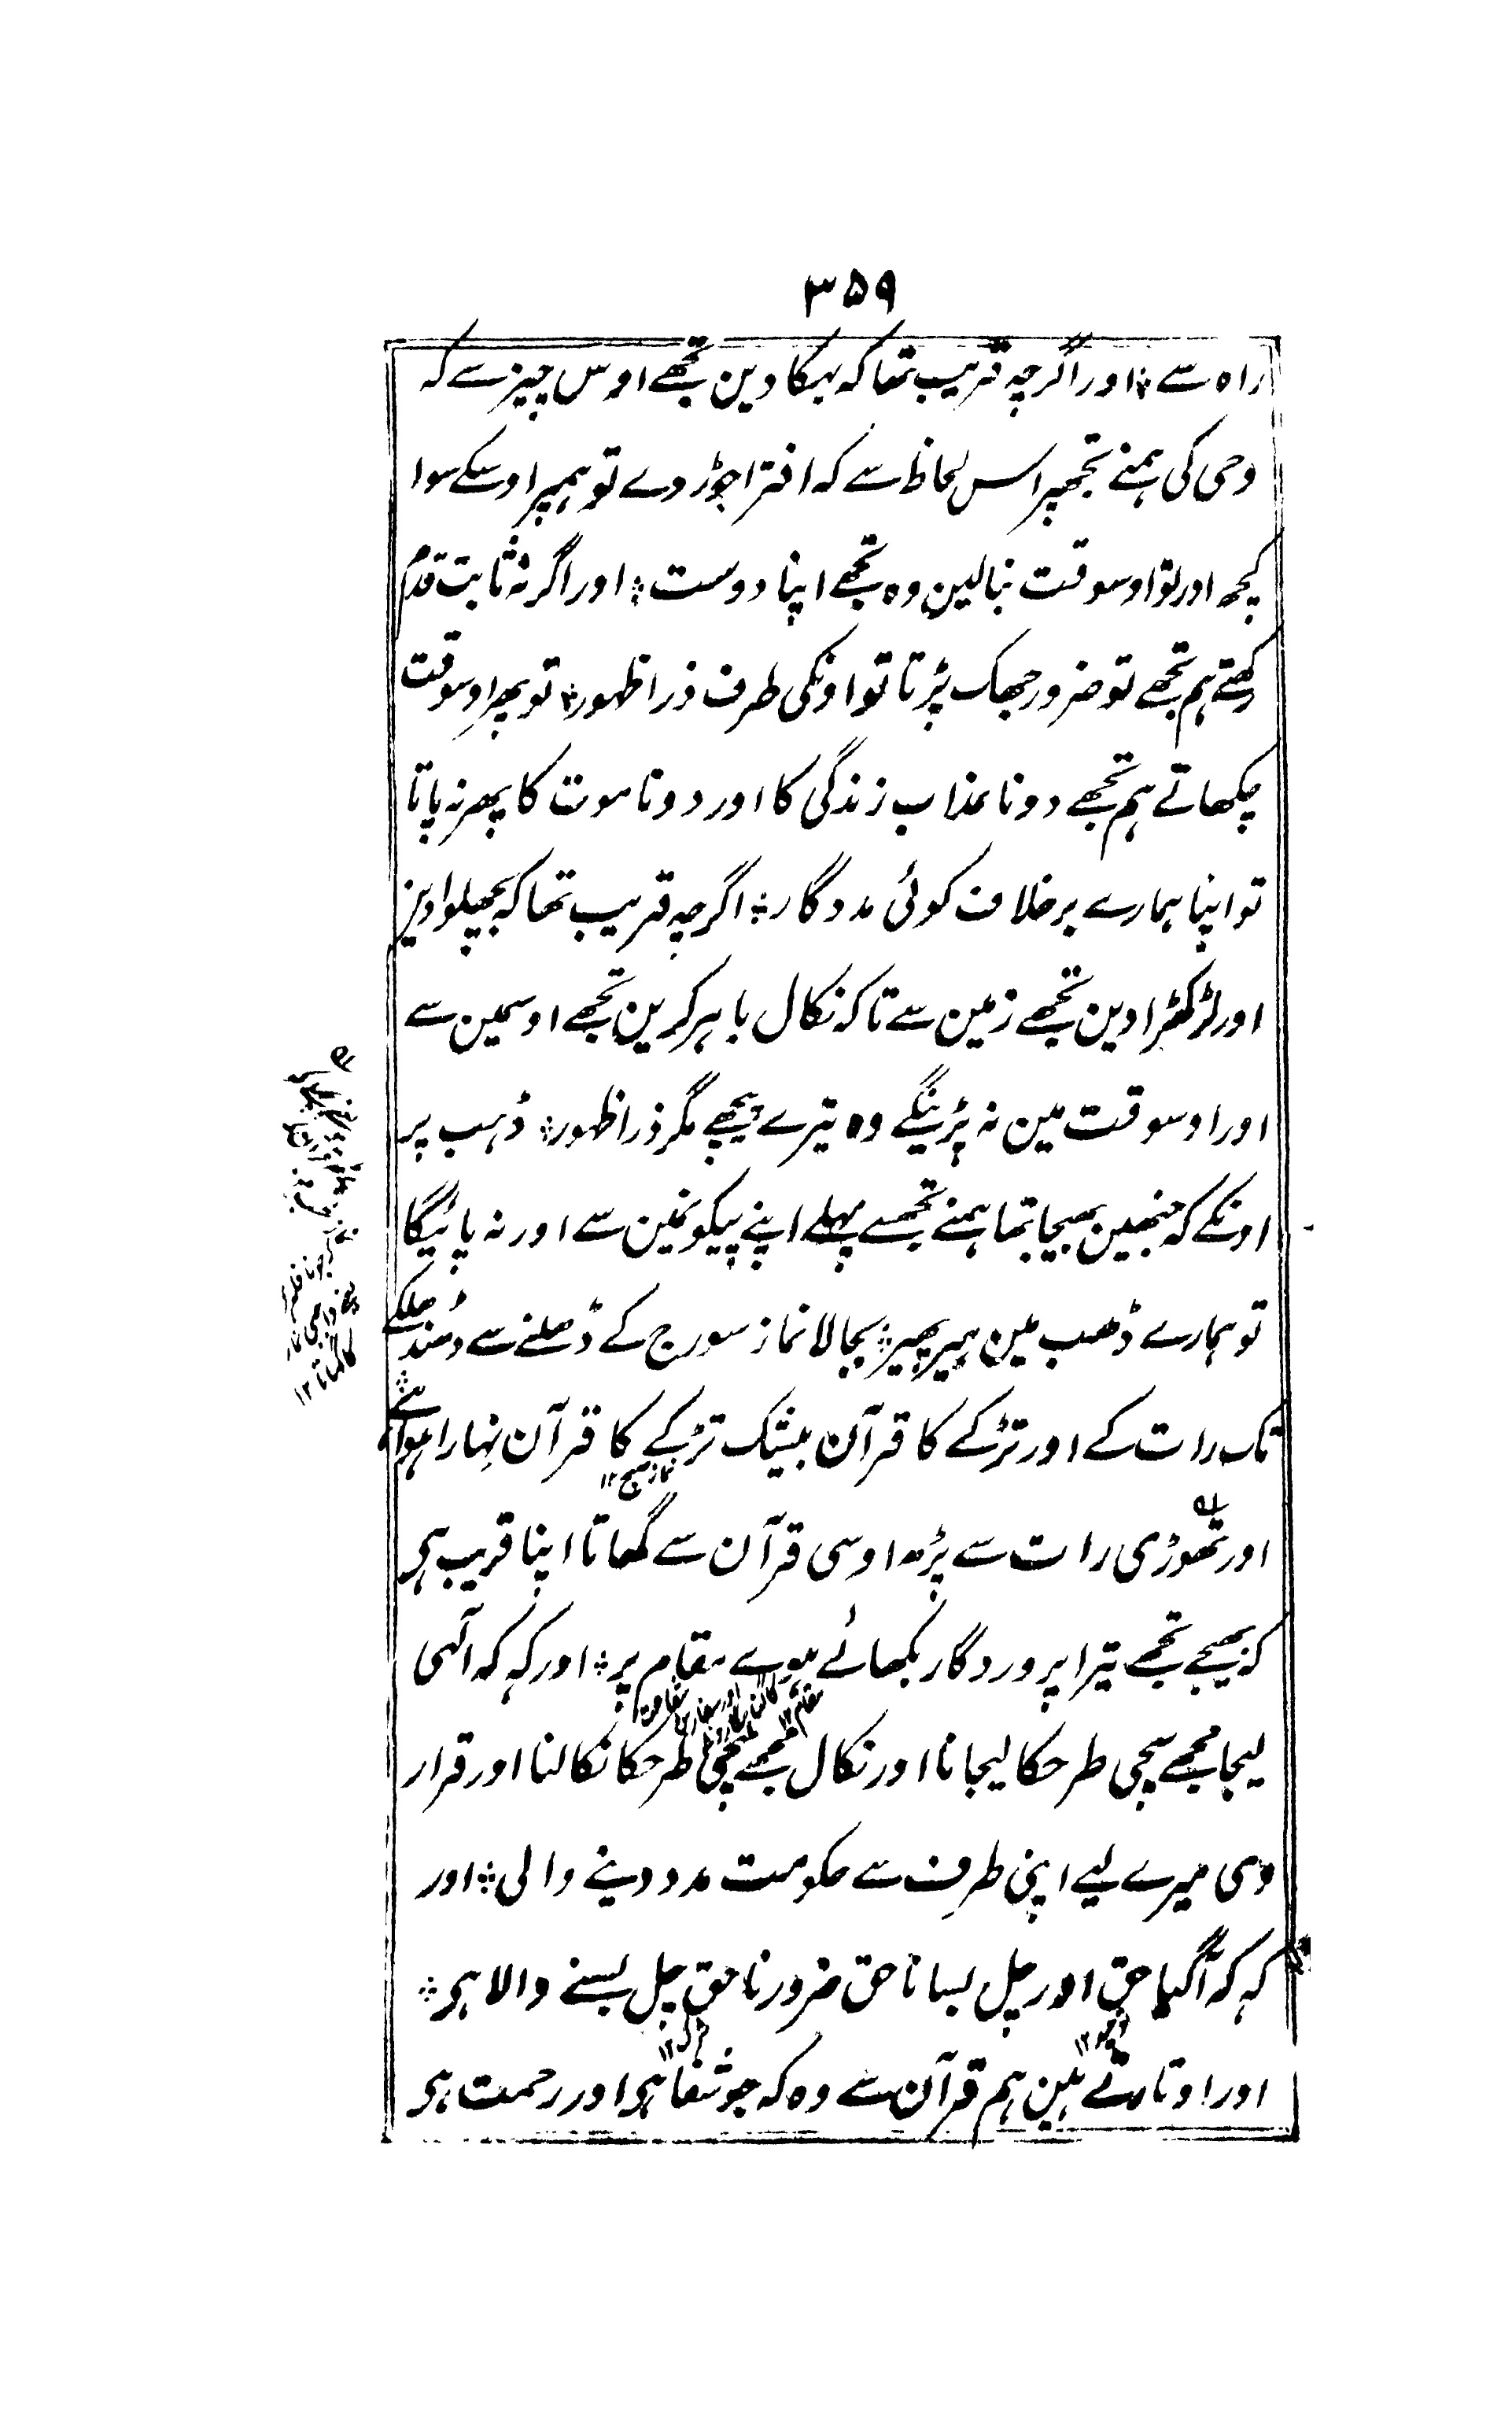 ۳۵۹
راہ سے؞ اور اگرچہ قریب تھا کہ بہکا دین تجھے اوس چیز سے کہ
وحی کی ہمنے تجھپر اس لحاظ سے کہ افترا جوڑ دے تو ہمپر اوسکے سوا
کچھ اور تو اوسوقت بنالین وہ تجھے اپنا دوست؞ اور اگر نہ ثابت قدم
رکھتے ہم تجھے تو ضرور جھک پڑتا تو اونکی طرف ذرا ظہور؞ تو پھر اوسوقت
چکھاتے ہم تجھے دونا عذاب زندگی کا اور دونا موت کا پھر نہ پاتا
تو اپنا ہمارے برخلاف کوئی مددگار؞ اگرچہ قریب تھا کہ بچھلوادین
اور لڑکھڑادین تجھے زمین سے تاکہ نکال باہر کرین تجھے اوسمین سے
اور اوسوقت مین نہ پڑینگے وہ تیرے پیچھے مگر ذرا ظہور؞ ڈہب پر
اونکے کہ جنھین بھیجا تھا ہمنے تجھسے پہلے اپنے پیکونمین سے اور نہ پائیگا
تو ہمارے ڈھب مین ہیر پھیر؞ بجالا نماز سورج کے ڈھلنے سے دُھندھلکے
تک رات کے اور تڑکے کا قرآن بیشک تڑکے کا قرآن نہارا ہوا ہے؞
نماز صبح ۱۲
اور تھوڑی رات سے پڑھ اوسی قرآن سے گھاتا اپنا قریب ہی
کہ بھیجے تجھے تیرا پروردگار بکھانے ہوے مقام پر؞ اور کہ کہ الٰہی
لیجا مجھے سچی طرحکا لیجانا اور نکال مجھے سچی طرحکا نکالنا اور قرار
دی میرے لیے اپنی طرف سے حکومت مدد دینے والی؞ اور
کہ کہ آگیا حق اور چل بسا ناحق ضرور ناحق چل بسنے والا ہی؞
اور اوتارتے ہین ہم قرآن سے وہ کہ جو شفا ہی اور رحمت ہی